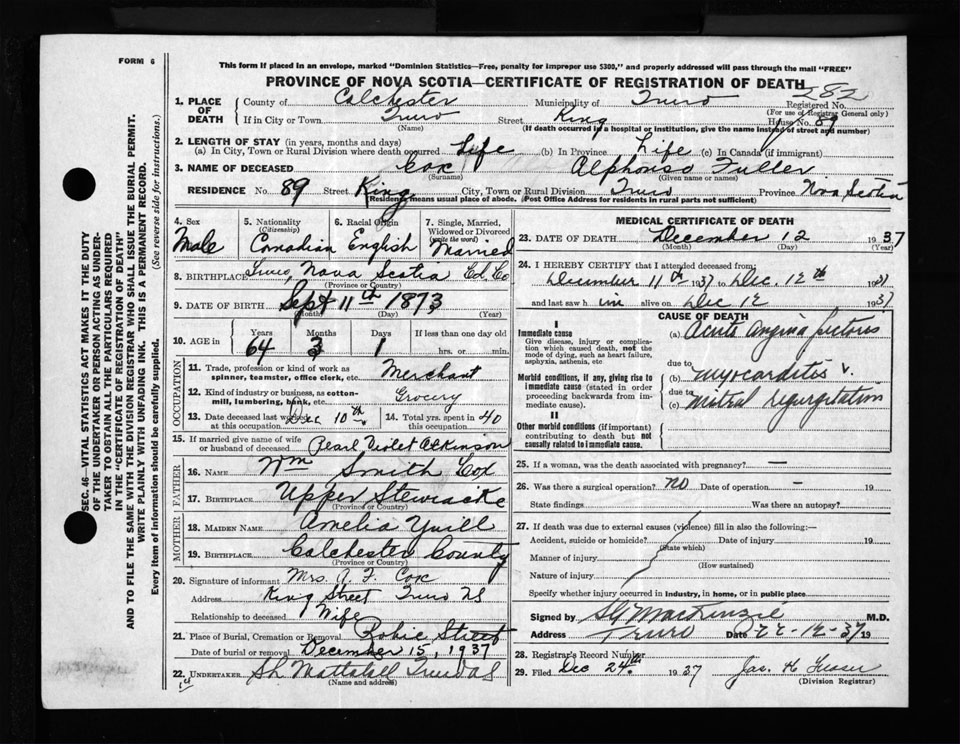 FORM 6
This form if placed in an envelope, marked "Dominion Statistics—Free, penalty for improper use $300," and properly addressed will pass through the mail "FREE"
PROVINCE OF NOVA SCOTIA—CERTIFICATE OF REGISTRATION OF DEATH
282
1. PLACE OF DEATH
County of Colchester Municipality of Truro Registered No.
(For use of Registrar General only)
If in City or Town Truro Street King House No. 89
(Name) (If death occurred in a hospital or institution, give the name instead of street and number)
2. LENGTH OF STAY (in years, months and days)
(a) In City, Town or Rural Division where death occurred Life (b) In Province Life (c) In Canada (if immigrant)
3. NAME OF DECEASED Cox Alphonso Fuller
(Surname) (Given name or names)
RESIDENCE No. 89 Street King City, Town or Rural Division Truro Province Nova Scotia
(Residence means usual place of abode. Post Office Address for residents in rural parts not sufficient)
4. Sex Male
5. Nationality (Citizenship) Canadian
6. Racial Origin English
7. Single, Married, Widowed or Divorced (write the word) Married
8. BIRTHPLACE Truro, Nova Scotia Col. Co
(Province or Country)
9. DATE OF BIRTH Sept 11th 1873
(Month) (Day) (Year)
10. AGE in Years 64 Months 3 Days 1 If less than one day old hrs. or min.
OCCUPATION
11. Trade, profession or kind of work as spinner, teamster, office clerk, etc. Merchant
12. Kind of industry or business, as cotton-mill, lumbering, bank, etc. Grocery
13. Date deceased last worked at this occupation Dec 10th
14. Total yrs. spent in this occupation 40
15. If married give name of wife or husband of deceased Pearl Violet Atkinson
FATHER
16. Name Wm Smith Cox
17. Birthplace Upper Stewiacke
(Province or Country)
MOTHER
18. Maiden Name Amelia Yuill
19. Birthplace Colchester County
(Province or Country)
20. Signature of informant Mrs. A. F. Cox
Address King Street Truro NS
Relationship to deceased Wife
21. Place of Burial, Cremation or Removal Robie Street
Date of burial or removal December 15, 1937
22. UNDERTAKER Mattatall Truro NS
(Name and address)
MEDICAL CERTIFICATE OF DEATH
23. DATE OF DEATH December 12 1937
(Month) (Day) (Year)
24. I HEREBY CERTIFY that I attended deceased from:
December 11th 1937 to Dec. 12th 1937
and last saw him alive on Dec 12 1937
CAUSE OF DEATH
I
Immediate cause
Give disease, injury or complication which caused death, not the mode of dying, such as heart failure, asphyxia, asthenia, etc
(a) Acute Angina pectoris
due to
Morbid conditions, if any, giving rise to immediate cause (stated in order proceeding backwards from immediate cause).
(b) Myocarditis v.
due to
(c) Mitral regurgitation
II
Other morbid conditions (if important) contributing to death but not causally related to immediate cause.
25. If a woman, was the death associated with pregnancy? —
26. Was there a surgical operation? no Date of operation — 19
State findings Was there an autopsy?
27. If death was due to external causes (violence) fill in also the following:—
Accident, suicide or homicide? Date of injury 19
(State which)
Manner of injury
(How sustained)
Nature of injury
Specify whether injury occurred in industry, in home, or in public place
Signed by MacKenzie M.D.
Address Truro Date 22-12-37 19
28. Registrar's Record Number
29. Filed Dec 24th 1937 Jas. H
(Division Registrar)
SEC. 46—VITAL STATISTICS ACT MAKES IT THE DUTY
OF THE UNDERTAKER OR PERSON ACTING AS UNDER-
TAKER TO OBTAIN ALL THE PARTICULARS REQUIRED
IN THE "CERTIFICATE OF REGISTRATION OF DEATH"
AND TO FILE THE SAME WITH THE DIVISION REGISTRAR WHO SHALL ISSUE THE BURIAL PERMIT.
WRITE PLAINLY WITH UNFADING INK. THIS IS A PERMANENT RECORD.
Every item of information should be carefully supplied. (See reverse side for instructions.)